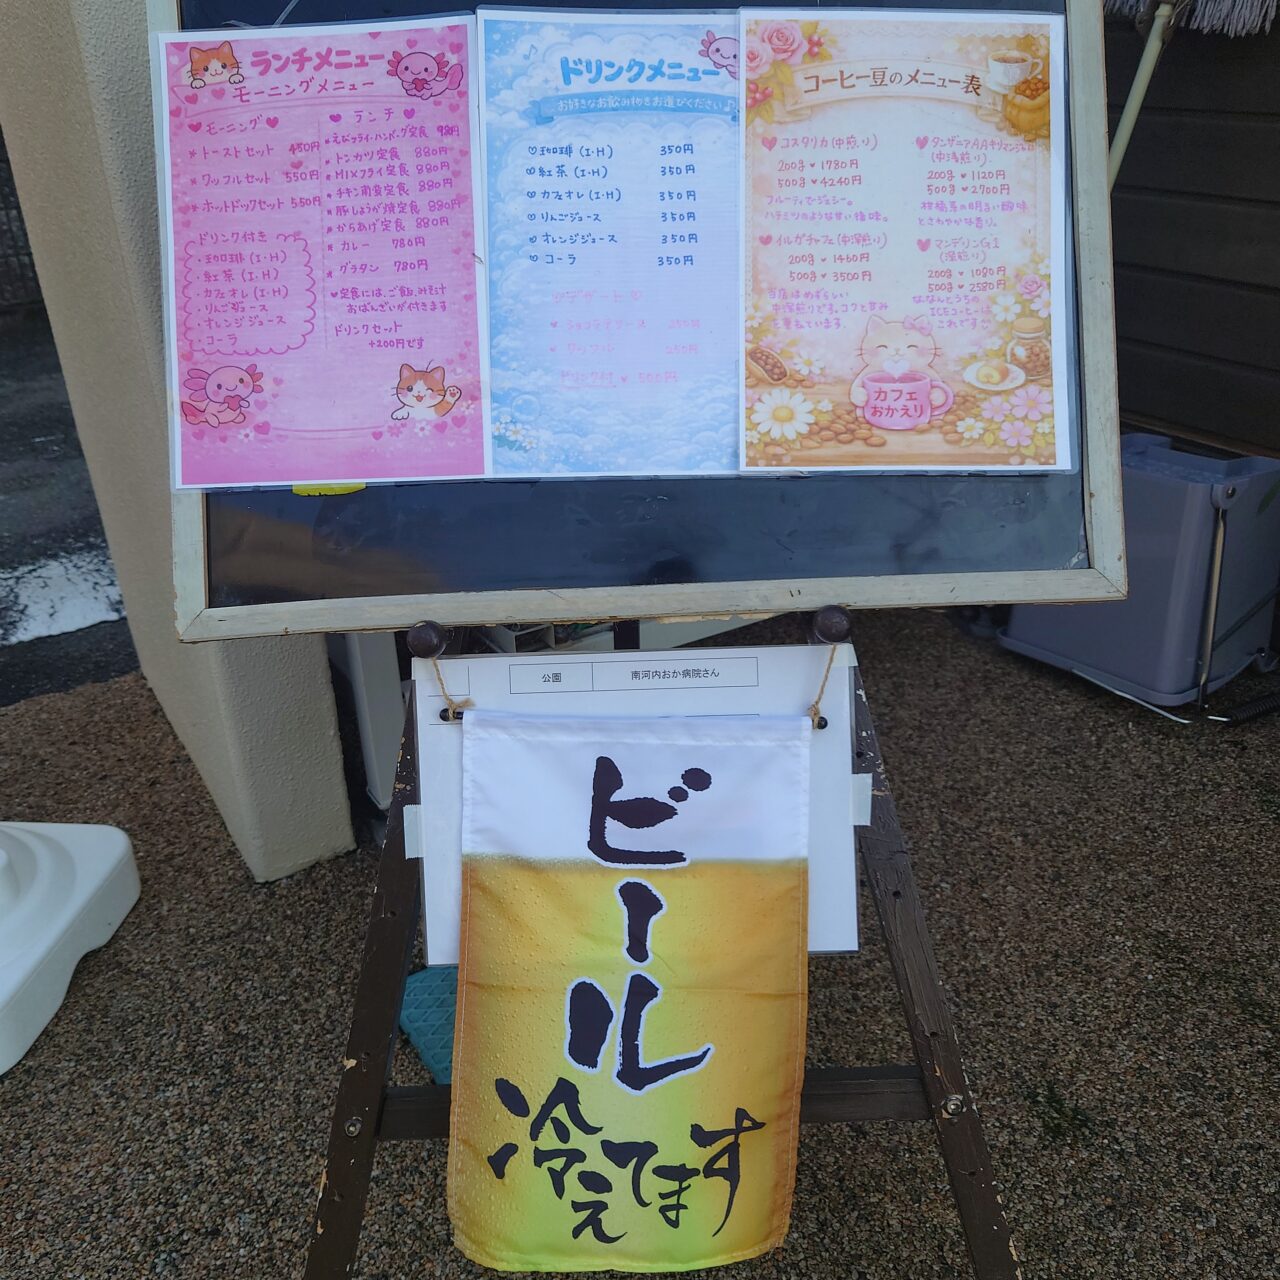 ランチメニュー
モーニングメニュー
モーニング
トーストセット 450円
ワッフルセット 550円
ホットドックセット 550円
ドリンク付き
・珈琲(I・H)
・紅茶(I・H)
・カフェオレ(I・H)
・りんごジュース
・オレンジジュース
・コーラ
ランチ
えびフライ・ハンバーグ定食
トンカツ定食 880円
MIXフライ定食 880円
チキン南蛮定食 880円
豚しょうが焼定食 880円
からあげ定食 880円
カレー 780円
グラタン 780円
定食には、ご飯、みそ汁
おばんざいが付きます
ドリンクセット
+200円です
ドリンクメニュー
お好きなお飲み物をお選びください♪
珈琲(I・H) 350円
紅茶(I・H) 350円
カフェオレ(I・H) 350円
りんごジュース 350円
オレンジジュース 350円
コーラ 350円
デザート
ショコラテリーヌ 250円
ワッフル 250円
ドリンク付 500円
コーヒー豆のメニュー表
コスタリカ(中煎り)
200g 1780円
500g 4240円
フルーティでジューシー。
ハチミツのような甘い後味。
イルガチャフェ(中深煎り)
200g 1460円
500g 3500円
当店はめずらしい
中深煎りです。コクと甘み
を重ねています。
タンザニアAAキリマンジャロ
(中浅煎り)
200g 1120円
500g 2700円
柑橘系の明るい酸味
とさわやかな香り。
マンデリンG1
(深煎り)
200g 1080円
500g 2580円
ななんとうちの
ICEコーヒーは
これです
カフェ
おかえり
公園 南河内おか病院さん
ビール
冷えてます